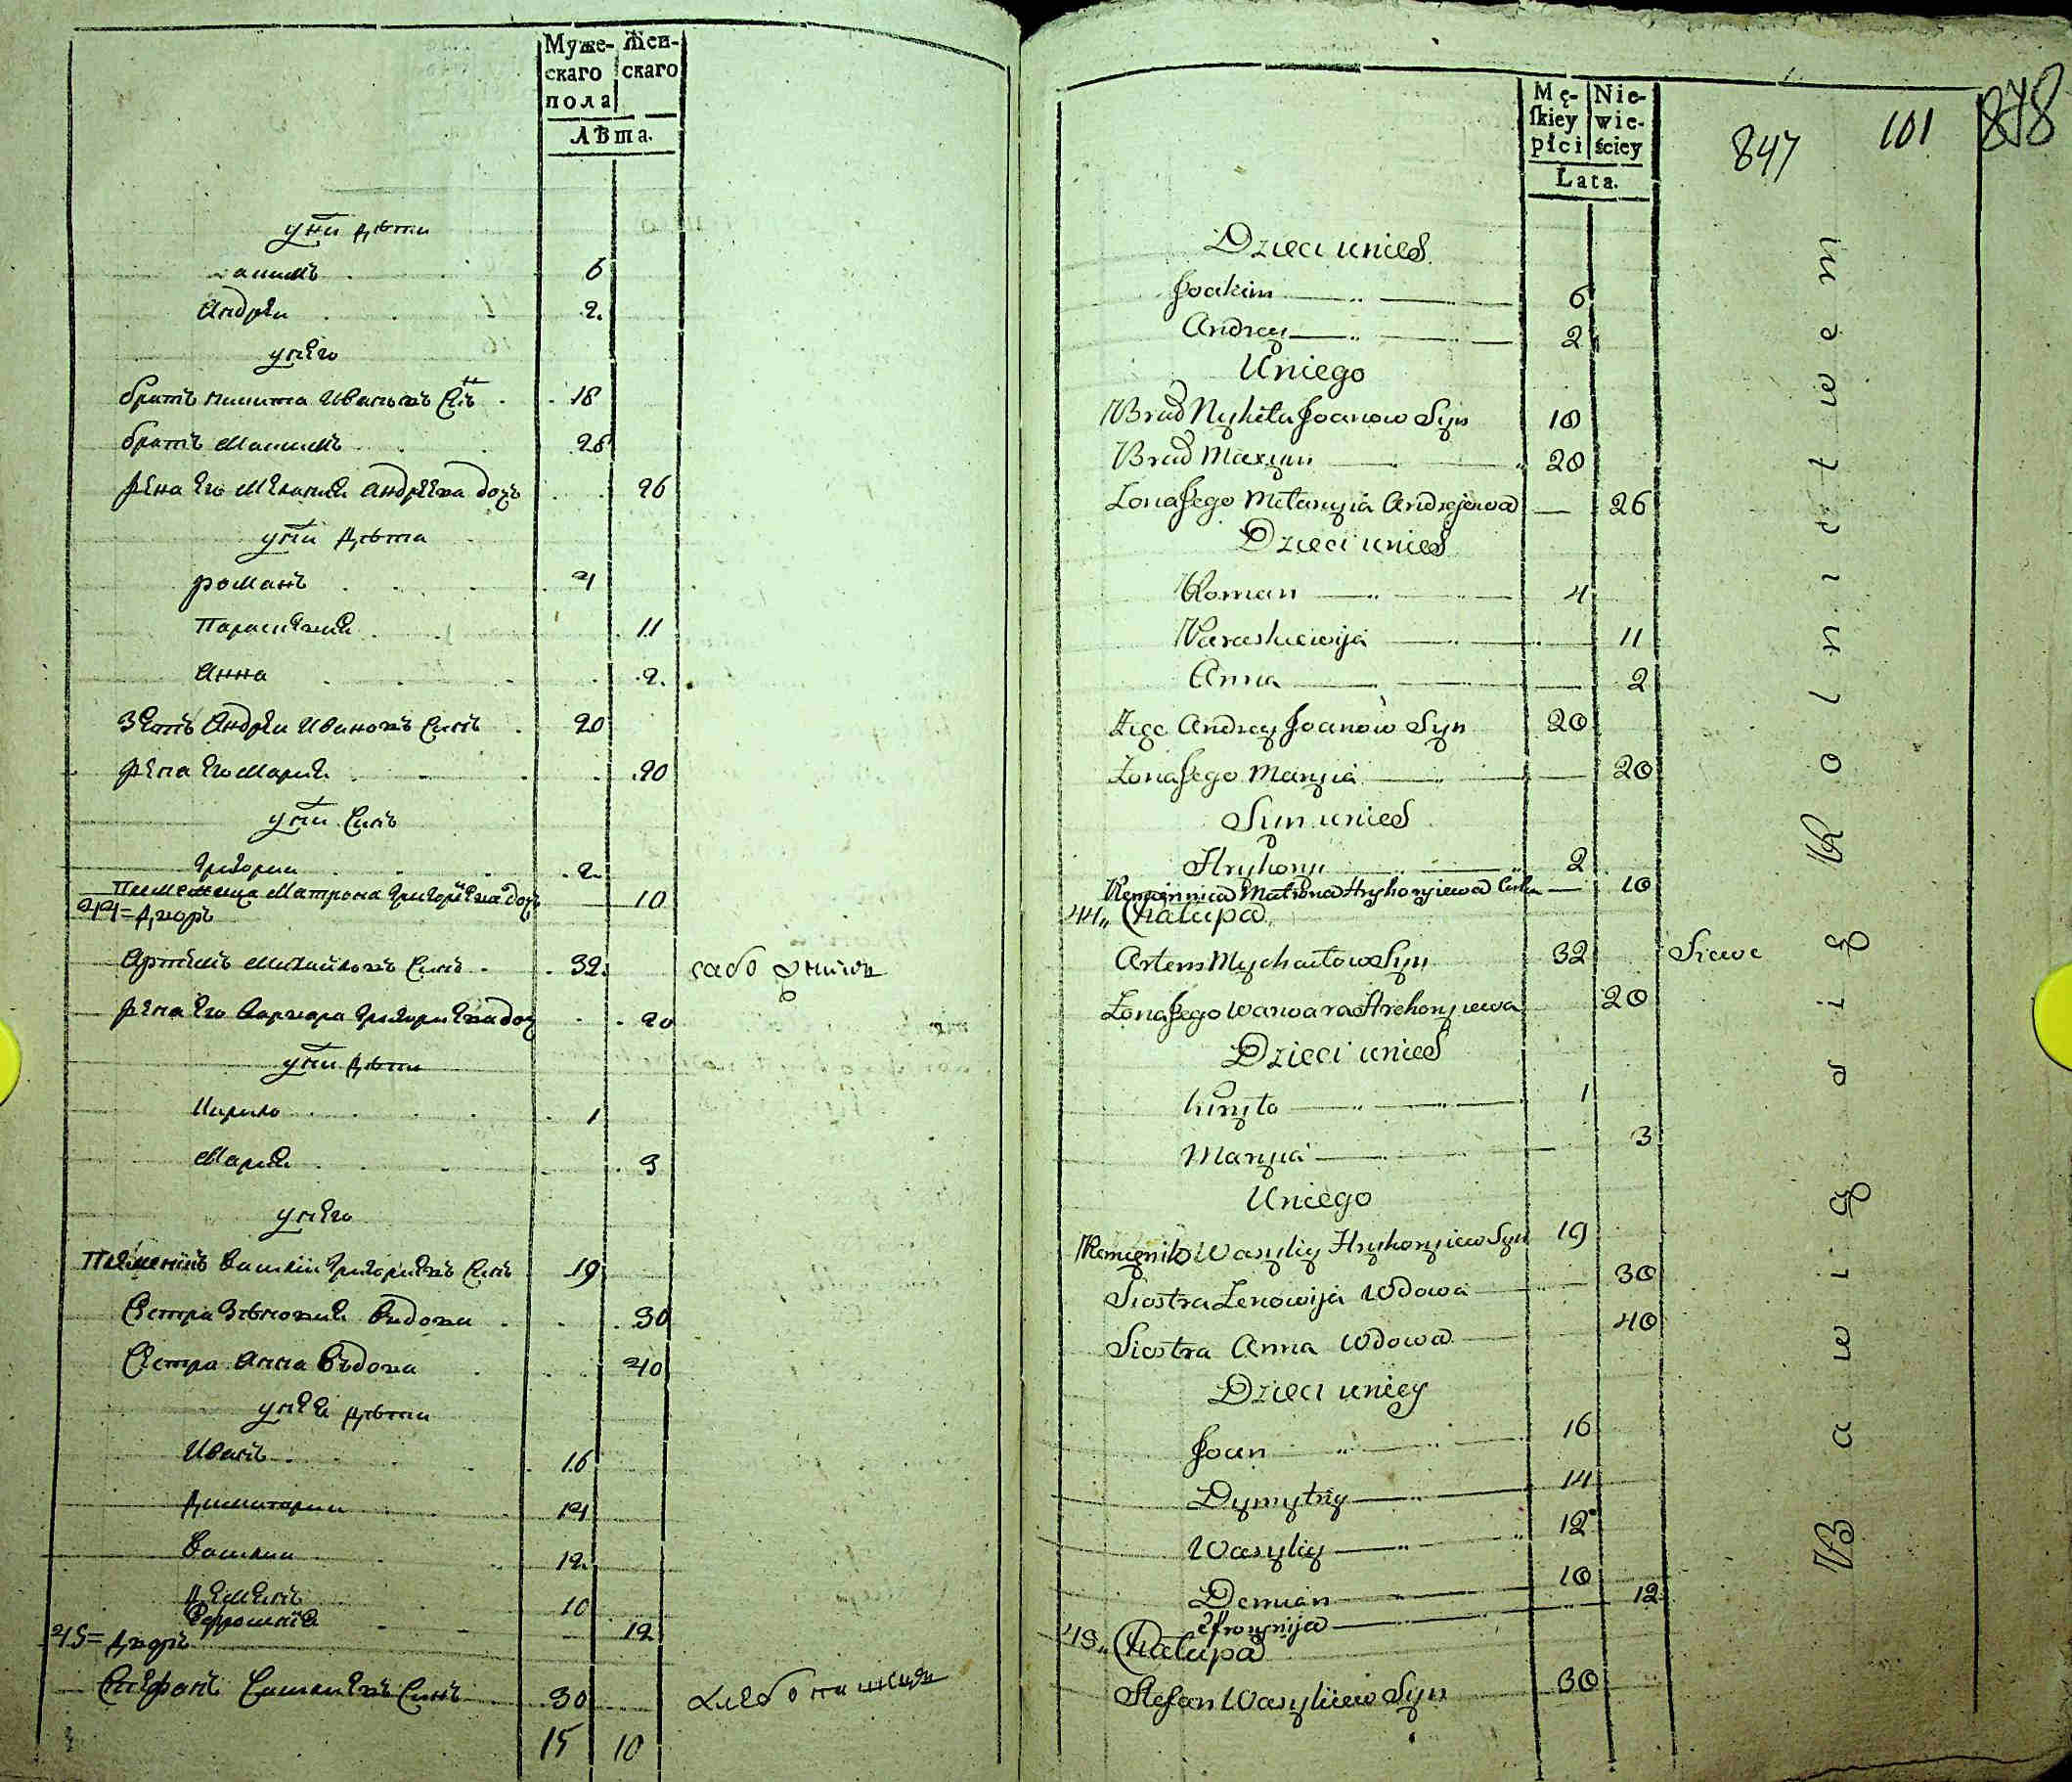 Муже-
скаго
пола
Жен-
скаго
Лѣта.
у ни дѣти
6
Андрѣи 2
у нѣго
братъ никита Ивановъ Снъ 18
братъ Максимъ
жена Его Мелания Андрѣева дочъ 26
у ни дѣти
романъ 4
Параскевия 11
Анна 2
Зять Андрѣи Ивановъ Синъ 20
жена Его Мария 20
у ни Синъ
Григории 2
Племеница Матрона Григориева дочъ 10
44= Дворъ
Артемъ Михайловъ Синъ 32
жена Его Варвара Григориева доч 20
у ни дѣти
Кирило 1
Мария 3
у нѣго
Племеникъ Василии Григориевъ Синъ 19
Сестра Зѣновия Вдова 30
Сестра Анна Въдова 40
у нѣи дѣти
Иванъ 16
Димитрии 14
Василии 12
Демянъ 10
Ефросиния 12
45= Дворъ
Стефанъ Василиевъ Синъ 30 хлебопашецъ
15 10
Mę-
ſkiey
płci
Nie-
wie-
ściey
Lata.
847 101 878
Dzieci unich
Joakim 6
Andrey 2
Uniego
Brad Nykita Joanow Syn 18
Brad Maxym 20
Zona Jego Melanyia Andrejewa 26
Dzieci unich
Roman 4
Paraskewija 11
Anna 2
Zięć Andrey Joanow Syn 20
Zona Jego Maryia 20
Syn unich
Hryhory 2
Plemiennica Matrona Hryhoryiewa Curka 10
44,, Chalupa
Artem Mychaiłow Syn 32
Zona Jego Warwara Hrehoryiewa 20
Dzieci unich
Kiryło 1
Maryia 3
Uniego
Plemięnik Wasyliy Hryhoryiew Syn 19
Siostra Zenowija Wdowa 30
Siostra Anna Wdowa 40
Dzieci uniey
Joan 16
Dymytriy 14
Wasyliy 12
Demian 10
Efrosynija 12
45,, Chalupa
Stefan Wasyliew Syn 30
Bawią się Rolnictwem